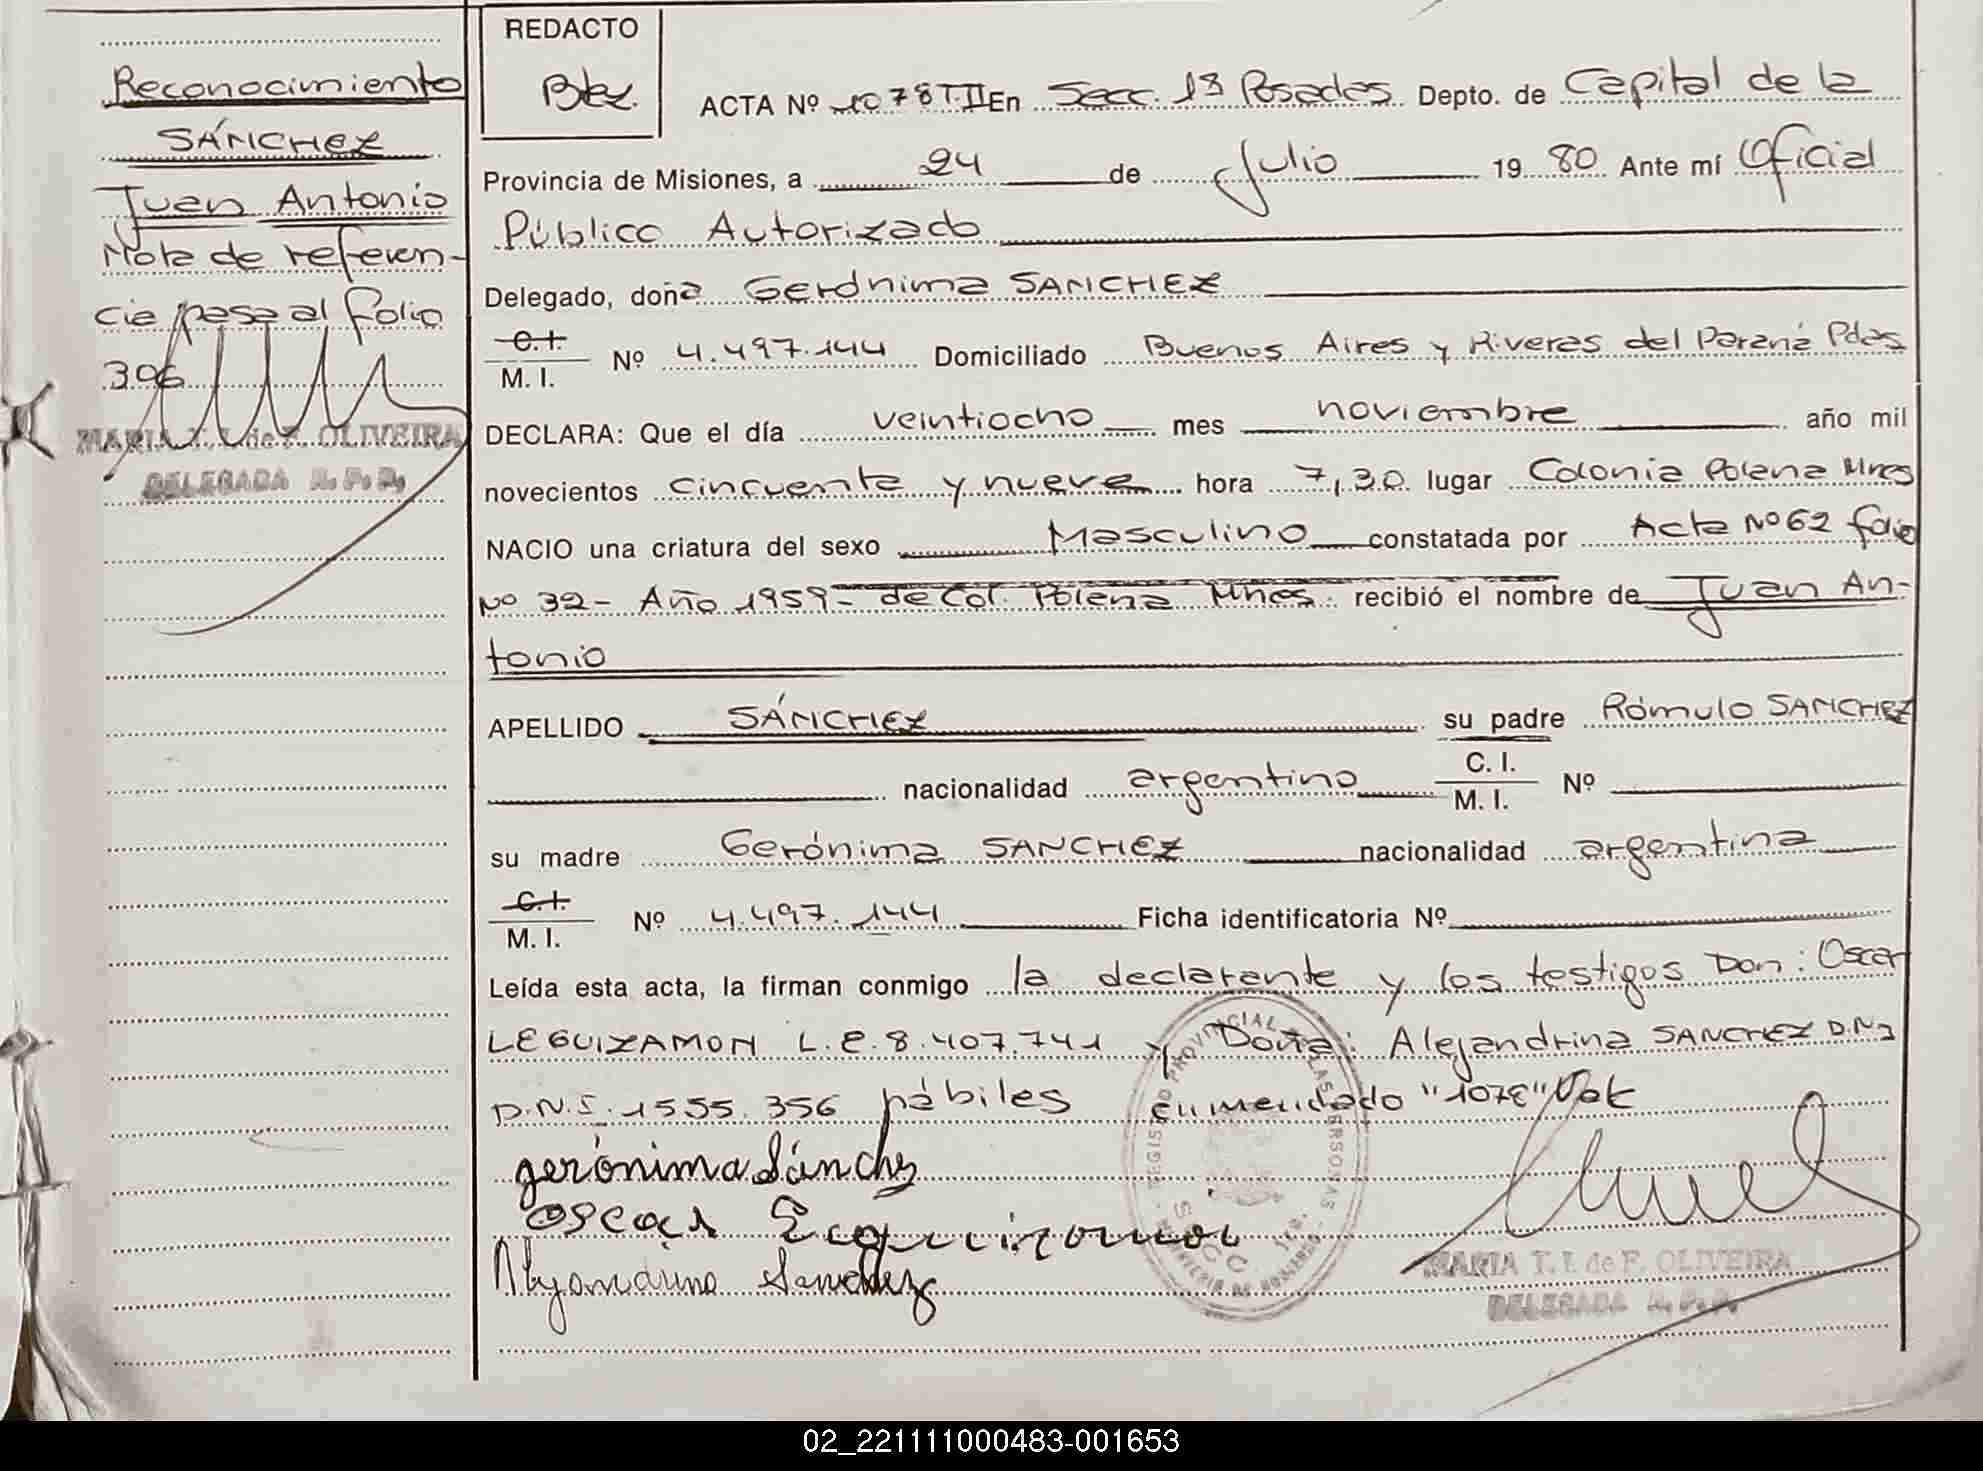 Reconocimiento
SÁNCHEZ
Juan Antonio
Nota de referen-
cia pasa al folio
396
MARIA T. I. de F. OLIVEIRA
DELEGADA R. P. P.
REDACTO
Btez.
ACTA Nº 1078 T.II En Secc. 13 Posadas Depto. de Capital de la
Provincia de Misiones, a 24 de Julio 1980 Ante mí Oficial
Público Autorizado
Delegado, doña Gerónima SANCHEZ
C.I. M. I. Nº 4.497.144 Domiciliado Buenos Aires y Riveras del Paraná Pdas
DECLARA: Que el día veintiocho mes noviembre año mil
novecientos cincuenta y nueve hora 7,30 lugar Colonia Polana Mnes
NACIO una criatura del sexo Masculino constatada por Acta Nº 62 folio
Nº 32- Año 1959- de Col. Polana Mnes. recibió el nombre de Juan An-
tonio
APELLIDO SÁNCHEZ su padre Rómulo SANCHEZ
nacionalidad argentino C. I. M. I. Nº
su madre Gerónima SANCHEZ nacionalidad argentina
C.I. M. I. Nº 4.497.144 Ficha identificatoria Nº
Leída esta acta, la firman conmigo la declarante y los testigos Don: Oscar
LEGUIZAMON L.E. 8.407.741 y Doña: Alejandrina SANCHEZ D.N.I
D.N.I. 1555.356 hábiles enmendado "1078" Vale
gerónima Sánchez
REGISTRO PROVINCIAL DE LAS PERSONAS
SECC 1ra.
MARIA T. I. de F. OLIVEIRA
DELEGADA R. P. P.
02_221111000483-001653